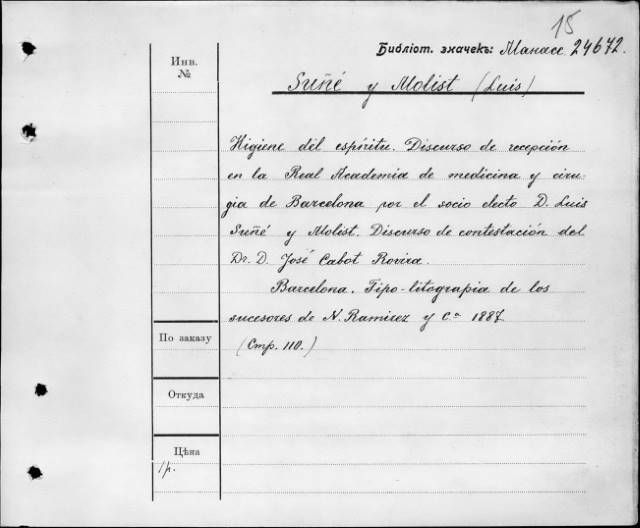 15
Библіот. значекъ: Манасс 24672.
Инв.
№
Suñé y Molist (Luis)
Higiene del espíritu. Discurso de recepción
en la Real Academia de medicina y ciru-
gia de Barcelona por el socio electo D. Luis
Suñé y Molist. Discurso de contestación del
Dr. D. José Cabot Rovira.
Barcelona. Tipo-litograpia de los
sucesores de N. Ramirez y Cª 1887
По заказу
(Стр. 110.)
Откуда
Цѣна
1р.